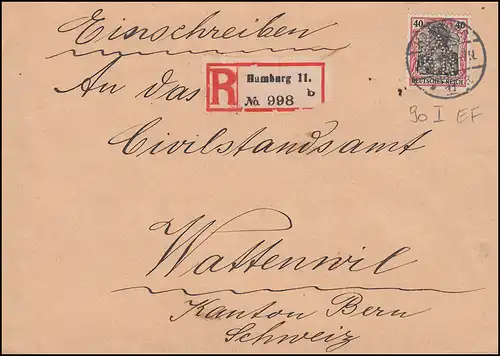 Einschreiben
40 40
DEUTSCHES REICH
An das
R Hamburg 11.
№ 998 b
90 I EF
Civilstandsamt
Wattenwil
Kanton Bern
Schweiz